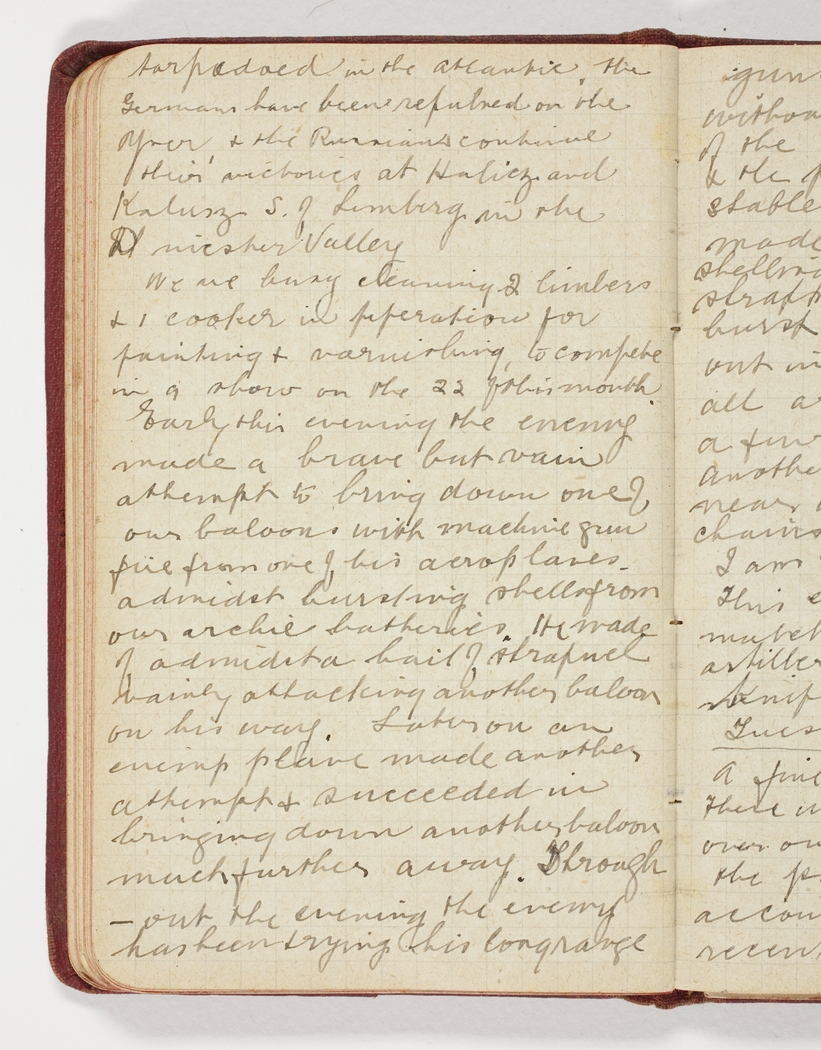 torpedoed in the atlantic, the
Germans have been repulsed on the
Yser & the Russians continue
their victories at Halicz and
Kalusz S. of Lemberg in the
Dniester Valley
We are busy cleaning 2 limbers
& 1 cooker in preperation for
painting & varnishing, to compete
in a show on the 22 of this month.
Early this evening the enemy
made a brave but vain
athempt to bring down one of
our baloons with machine gun
fire from one of his aeroplanes
admidst bursting shells from
our archie batteries. He made
off admidst a hail of strapnel
vainly attacking another baloon
on his way. Later on an
enemp plane made another
athempt & succeeded in
bringing down another baloon
much further away. Through
– out the evening the enemy
has been trying his long range
gun
withou
of the
& the
stable
made
shelling
straff
burst
out in
all a
a few
anothe
near
chains
I am
This e
match
artiller
Knif
Tues
A fine
There w
over ou
the p
accou
recen